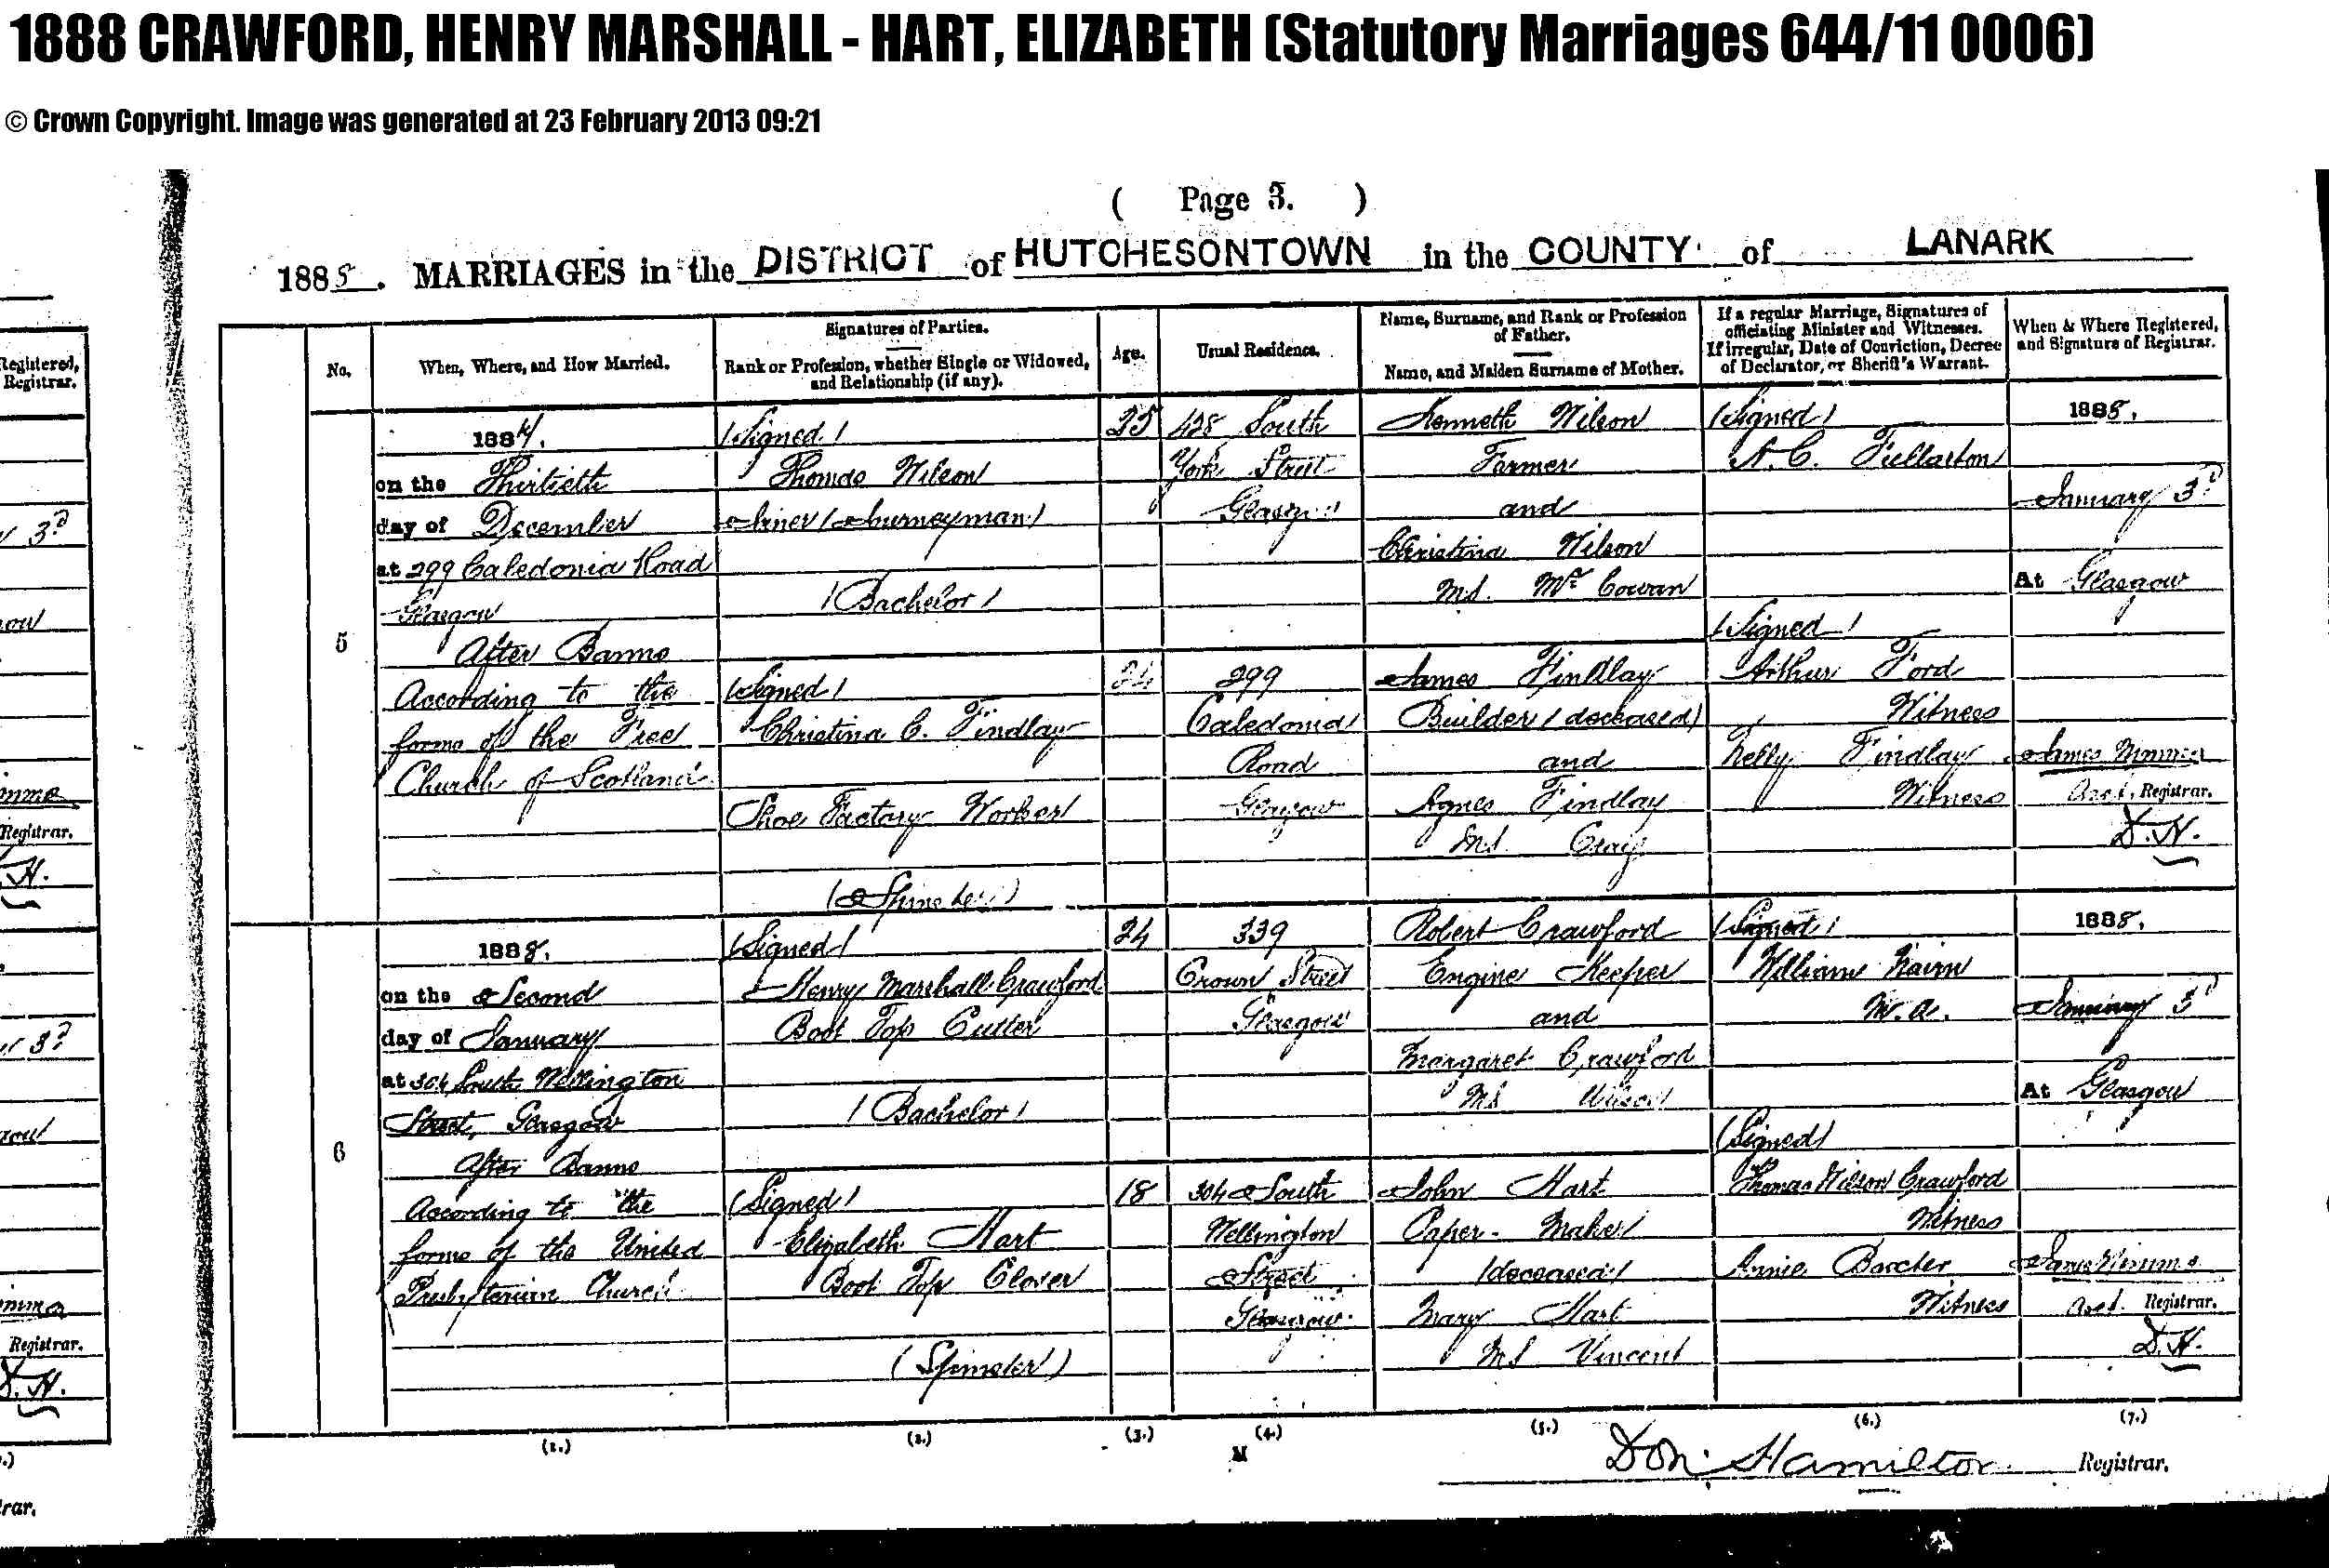 1888 CRAWFORD, HENRY MARSHALL - HART, ELIZABETH (Statutory Marriages 644/11 0006)
© Crown Copyright. Image was generated at 23 February 2013 09:21
( Page 3. )
1888. MARRIAGES in the DISTRICT of HUTCHESONTOWN in the COUNTY of LANARK
No.
When, Where, and How Married.
Signatures of Parties.
Rank or Profession, whether Single or Widowed,
and Relationship (if any).
Age.
Usual Residence.
Name, Surname, and Rank or Profession
of Father.
Name, and Maiden Surname of Mother.
If a regular Marriage, Signatures of
officiating Minister and Witnesses.
If irregular, Date of Conviction, Decree
of Declarator, or Sheriff's Warrant.
When & Where Registered,
and Signature of Registrar.
5
188
on the Thirtieth
day of December
at 299 Caledonia Road
Glasgow
After Banns
According to the
forms of the Free
Church of Scotland
(Signed)
Thomas Wilson
(Journeyman)
(Bachelor)
(Signed)
Christina C. Findlay
Shoe Factory Worker
(Spinster)
25
24
428 South
York Street
Glasgow
299
Caledonia
Road
Glasgow
Kenneth Wilson
Farmer
and
Christina Wilson
M.S. McCowan
James Findlay
Builder (deceased)
and
Agnes Findlay
M.S. Craig
(Signed)
A. C. Fullarton
(Signed)
Arthur Ford
Witness
Nelly Findlay
Witness
1888.
January 3d
At Glasgow
James
Asst. Registrar.
D. H.
6
1888.
on the Second
day of January
at 304 South Wellington
Street, Glasgow
After Banns
According to the
forms of the United
Presbyterian Church
(Signed)
Henry Marshall Crawford
Boot Top Cutter
(Bachelor)
(Signed)
Elizabeth Hart
Boot Top Closer
(Spinster)
24
18
339
Crown Street
Glasgow
304 South
Wellington
Street
Glasgow
Robert Crawford
Engine Keeper
and
Margaret Crawford
M.S. Wilson
John Hart
Paper-Maker
(deceased)
Mary Hart
M.S. Vincent
(Signed)
William Nairn
M.A.
(Signed)
Thomas Wilson Crawford
Witness
Annie
Witness
1888.
January 3d
At Glasgow
James
Asst. Registrar.
D. H.
(1.) (2.) (3.) (4.) (5.) (6.) (7.)
M
Hamilton Registrar.